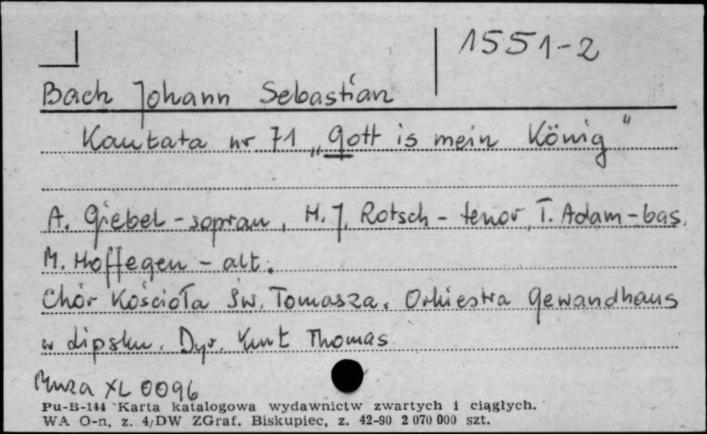 1551-2
Bach Johann Sebastian
Kantata nr 71 „Gott is mein König"
A. Giebel - sopran, H. J. Rotsch - tenor, T. Adam - bas.
M. Hoffegen - alt.
Chór Kościoła Św. Tomasza. Orkiestra Gewandhaus
w Lipsku. Dyr. Kurt Thomas
Muza XL 0096
Pu-B-144 Karta katalogowa wydawnictw zwartych i ciągłych.
WA O-n, z. 4/DW ZGraf. Biskupiec, z. 42-90 2 070 000 szt.